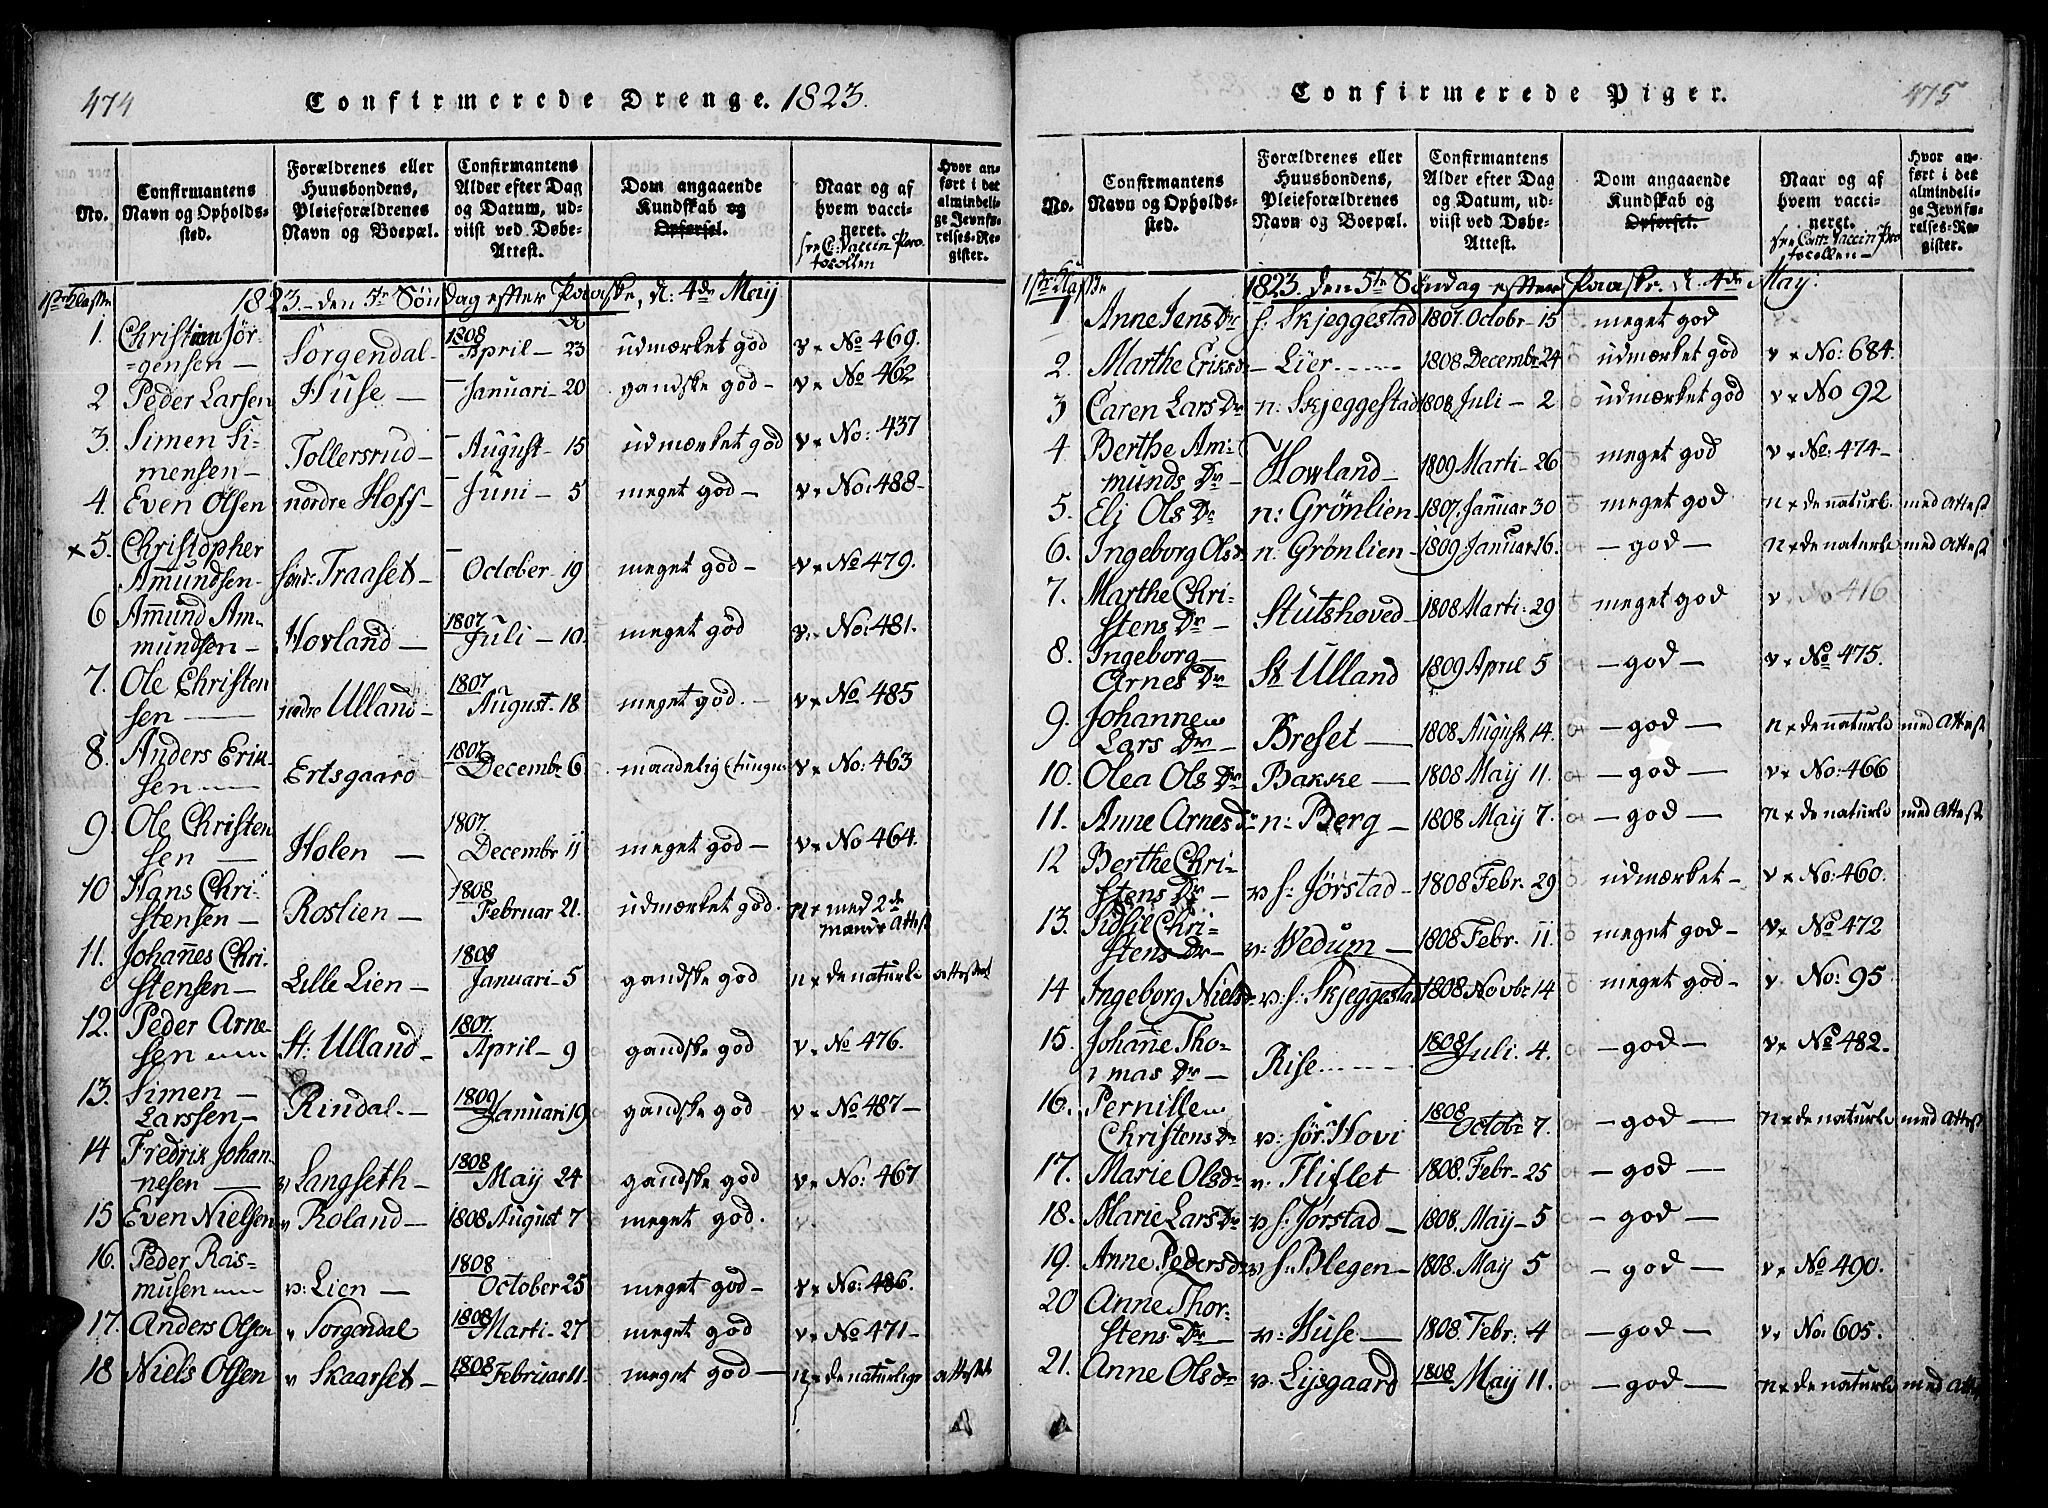 474
Confirmerede Drenge. 1823.
No.
Confirmantens Navn og Opholds-sted.
Forældrenes eller Huusbondens, Pleieforældrenes Navn og Boepæl.
Confirmantens Alder efter Dag og Datum, ud-viist ved Døbe-Attest.
Dom angaaende Kundskab og Opførsel.
Naar og af hvem vacci-neret.
Hvor an-ført i det almindeli-ge Jevnfø-relses-Re-gister.
1823 - den 5te Søndag efter Paaske, d: 4de Maij
1. Christian Jør-
=gensen — Sorgendal- 1808 April - 23 udmærket god v. No 469.
2 Peder Larsen Huse — — Januari - 20 gandske god - v. No 462
3. Simen Si-
mensen — Tollersrud - — August - 15 udmærket god v. No: 437
4. Even Olsen nordre Hoff - — Juni - 5 meget god - v. No: 488-
x 5. Christopher
Amundsen - sønd: Traaset - — October - 19 meget god - v. No 479.
6 Amund Am-
mundsen - Hovland — 1807 Juli - 10. meget god v. No: 481.
7. Ole Christen
sen — nedre Ulland - 1807 August. 18 meget god. - v. No 485
8. Anders Erik
sen — Ertsgaard 1807 Decembr 6 maadelig (tungn. v. No: 463
9. Ole Christen
sen — Holen — 1807. Decembr 11 meget god - v. No 464.
10 Hans Chri-
stensen - Roslien - 1808 Februar 21. udmærket god. n. med 2de mænds Attest
11. Johannes Chri-
stensen — Lille Lien - 1808 Januari - 5 gandske god n. de naturle attestert
12. Peder Arne
sen St: Ulland - 1807. April - 9 gandske god v. No 476.
13. Simen —
Larssen — Rindal. - 1809 Januari 19 gandske god v. No 487 -
14 Fredrik Johan-
nesen — v Langseth - 1808 May 24 gandske god v. No: 467
15 Even Nielsen v Roland - 1808 August 7 meget god. v.
16. Peder Ras-
musen v: Lien — 1808 October 25 meget god - v. No: 486.
17. Anders Olsen v Sorgendal 1808 Marti - 27 meget god v. No 471-
18 Niels Olsen v Skaarset - 1808 Februar 11. meget god — n. de naturlige attestert
475
Confirmerede Piger.
No.
Confirmantens Navn og Opholds-sted.
Forældrenes eller Huusbondens, Pleieforældrenes Navn og Boepæl.
Confirmantens Alder efter Dag og Datum, ud-viist ved Døbe-Attest.
Dom angaaende Kundskab og Opførsel.
Naar og af hvem vacci-neret.
Hvor an-ført i det almindeli-ge Jevnfø-relses-Re-gister.
1823 den 5te Søndag efter Paaske. d. 4de May:
1 Anne Jens Dr s: Skjeggestad 1807. Octobr - 15 meget god
2. Marthe Eriksdr - Lier 1808 Decembr 24 udmærket god v. No: 684.
3 Caren Lars Dr n: Skjeggestad 1808 Juli - 2 udmærket god v. No 92
4 Berthe Am-
munds Dr — Howland - 1809 Marti - 26 meget god v. No: 474-
5. Eli Ols Dr n: Grönlien 1807 Januar 30 meget god n. de naturle. med Attest
6. Ingeborg Olsdr n: Grönlien - 1809 Januar 16. - god - n. de naturle med Attest
7. Marthe Chri-
stens Dr — Stutshoved - 1808 Marti - 29 meget god v No 416
8. Ingeborg —
Arnes Dr St Ulland 1809 April 5 - god - v. No 475.
9. Johanne
Lars Dr — Breset — 1808 August 14. - god - n. de naturle med Attest
10. Olea Ols Dr Bakke — 1808 May 11. - god - v. No: 466
11. Anne Arnes Dr n: Berg - 1808 May 7. - god - n. de naturle med Attest
12 Berthe Chri-
stens Dr — v s: Jørstad - 1808 Febr. 29 udmærket - v. No: 460.
13. Sidsil Chri-
stens Dr — v: Vedum — 1808 Febr. 11. meget god - v. No 472
14 Ingeborg Nielsdr v: s: Skjeggestad 1808 Novbr 14 meget god - v. No: 95.
15. Johanne Tho-
mas Dr — Rise 1808 Juli. 4. - god - v. No 482.
16. Pernille
Christens Dr v: sør: Hovi 1808 Octobr 7. - god — n. de naturle med Attest
17. Marie Olsdr v: Fliflet 1808. Febr - 25 - god —
18. Marie Lars Dr v s: Jørstad - 1808. May - 5 - god —
19. Anne Pedersdr v s: Blegen - 1808. May 5 - god — v. No 490.
20 Anne Thor-
stens Dr — v: Huse — 1808 Febr: 4 - god — v. No: 605.
21. Anne Olsdr v. Lysgaard 1808 May 11. - god — n. de naturle med Attest